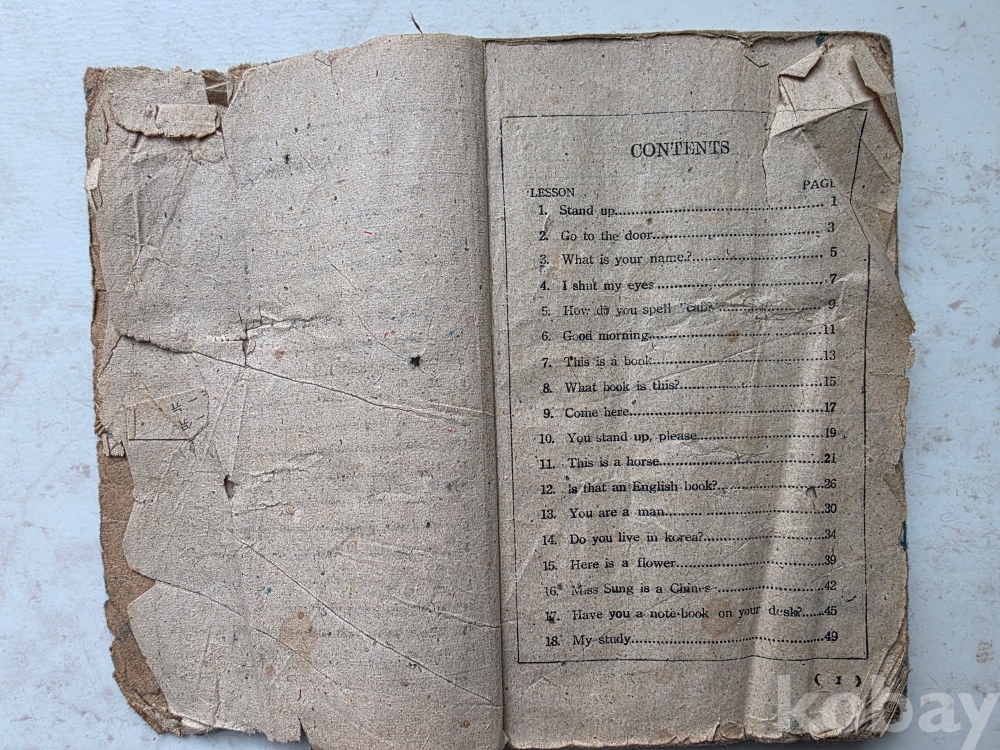 CONTENTS
LESSON PAGE
1. Stand up........ 1
2. Go to the door........ 3
3. What is your name?........ 5
4. I shut my eyes ........ 7
5. How do you spell "cap" ........ 9
6. Good morning........ 11
7. This is a book........ 13
8. What book is this?........ 15
9. Come here........ 17
10. You stand up, please........ 19
11. This is a horse........ 21
12. Is that an English book?........ 26
13. You are a man........ 30
14. Do you live in korea?........ 34
15. Here is a flower........ 39
16. Miss Sung is a Chines ........ 42
17. Have you a note-book on your desk?......45
18. My study........ 49
( 1 )
kobay